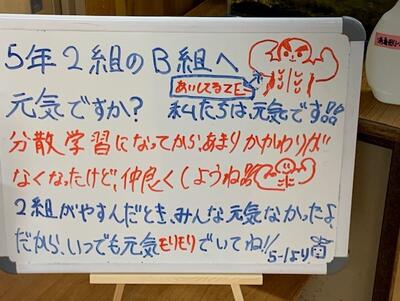 5年2組のB組へ
あいしてるでE〜
元気ですか? 私たちは、元気です
分散学習になってからあまりかかわりが
なくなったけど、仲良くしようね
2組がやすんだとき、みんな元気なかったよ
だから、いつでも元気モリモリでいてね!!
5-1より